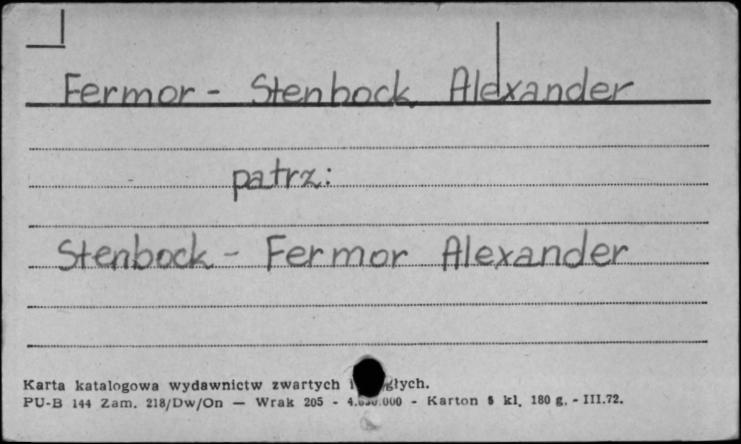 Fermor - Stenbock Alexander
patrz:
Stenbock - Fermor Alexander
Karta katalogowa wydawnictw zwartych
PU-B 144 Zam. 218/Dw/On — Wrak 205 - Karton 5 kl. 180 g. - III.72.